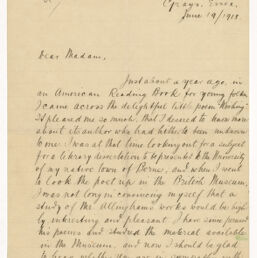 Grays, Essex.
June 19/1908.
Dear Madam,
Just about a year ago, in
an American Reading Book for young folks
I came across the delightful little poem Wishing
It pleased me so much, that I desired to know more
about its author who had hitherto been unknown
to me. I was at that time looking out for a subject
for a literary dissertation to be presented to the University
of my native town of Berne, and when I went
to look the poet up in the British Museum,
I was not long in convincing myself that a
study of the Allingham works would be high-
ly interesting and pleasant. I have since perused
his poems and studied the material available
in the Museum, and now I should be glad
to know whether you are in